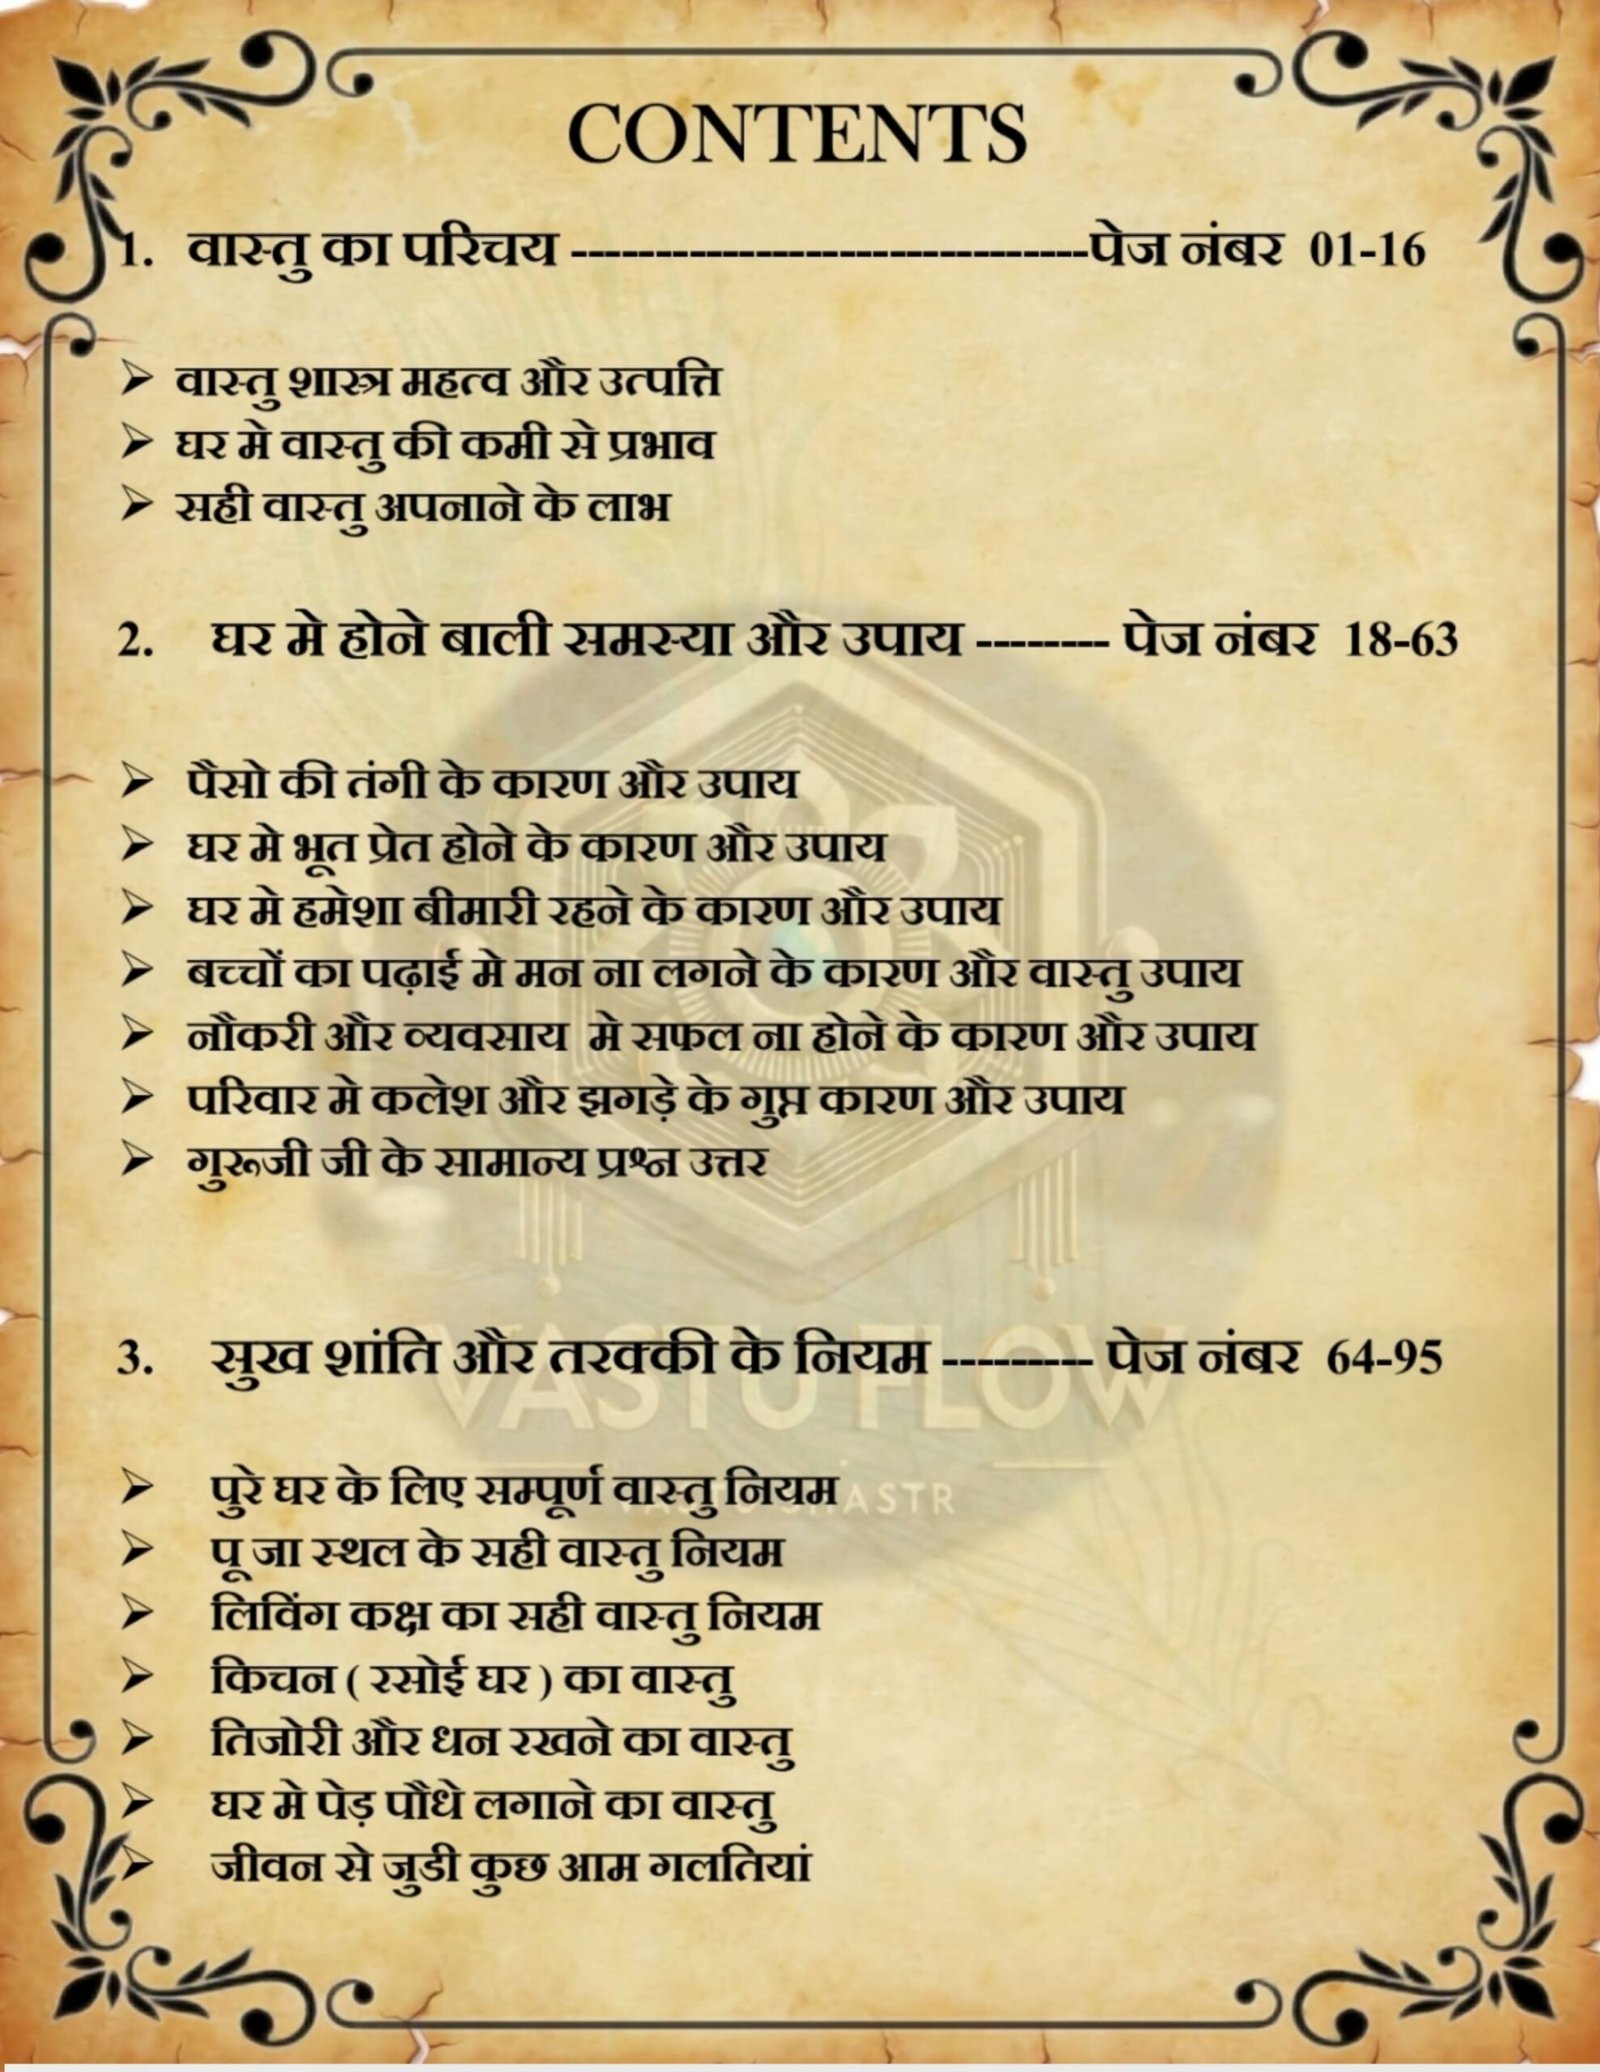 CONTENTS
1. वास्तु का परिचय -------------------------------पेज नंबर 01-16
वास्तु शास्त्र महत्व और उत्पत्ति
घर मे वास्तु की कमी से प्रभाव
सही वास्तु अपनाने के लाभ
2. घर मे होने बाली समस्या और उपाय -------- पेज नंबर 18-63
पैसो की तंगी के कारण और उपाय
घर मे भूत प्रेत होने के कारण और उपाय
घर मे हमेशा बीमारी रहने के कारण और उपाय
बच्चों का पढ़ाई मे मन ना लगने के कारण और वास्तु उपाय
नौकरी और व्यवसाय मे सफल ना होने के कारण और उपाय
परिवार मे कलेश और झगड़े के गुप्त कारण और उपाय
गुरूजी जी के सामान्य प्रश्न उत्तर
3. सुख शांति और तरक्की के नियम --------- पेज नंबर 64-95
VASTU FLOW
पुरे घर के लिए सम्पूर्ण वास्तु नियम
VASTU SHASTR
पू जा स्थल के सही वास्तु नियम
लिविंग कक्ष का सही वास्तु नियम
किचन ( रसोई घर ) का वास्तु
तिजोरी और धन रखने का वास्तु
घर मे पेड़ पौधे लगाने का वास्तु
जीवन से जुडी कुछ आम गलतियां